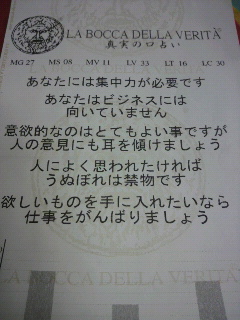 LA BOCCA DELLA VERITÀ
真実の口占い
MG 27 MS 08 MV 11 LV 33 LT 16 LC 30
あなたには集中力が必要です
あなたはビジネスには
向いていません
意欲的なのはとてもよい事ですが
人の意見にも耳を傾けましょう
人によく思われたければ
うぬぼれは禁物です
欲しいものを手に入れたいなら
仕事をがんばりましょう
LA BOCCA DELLA VERITA